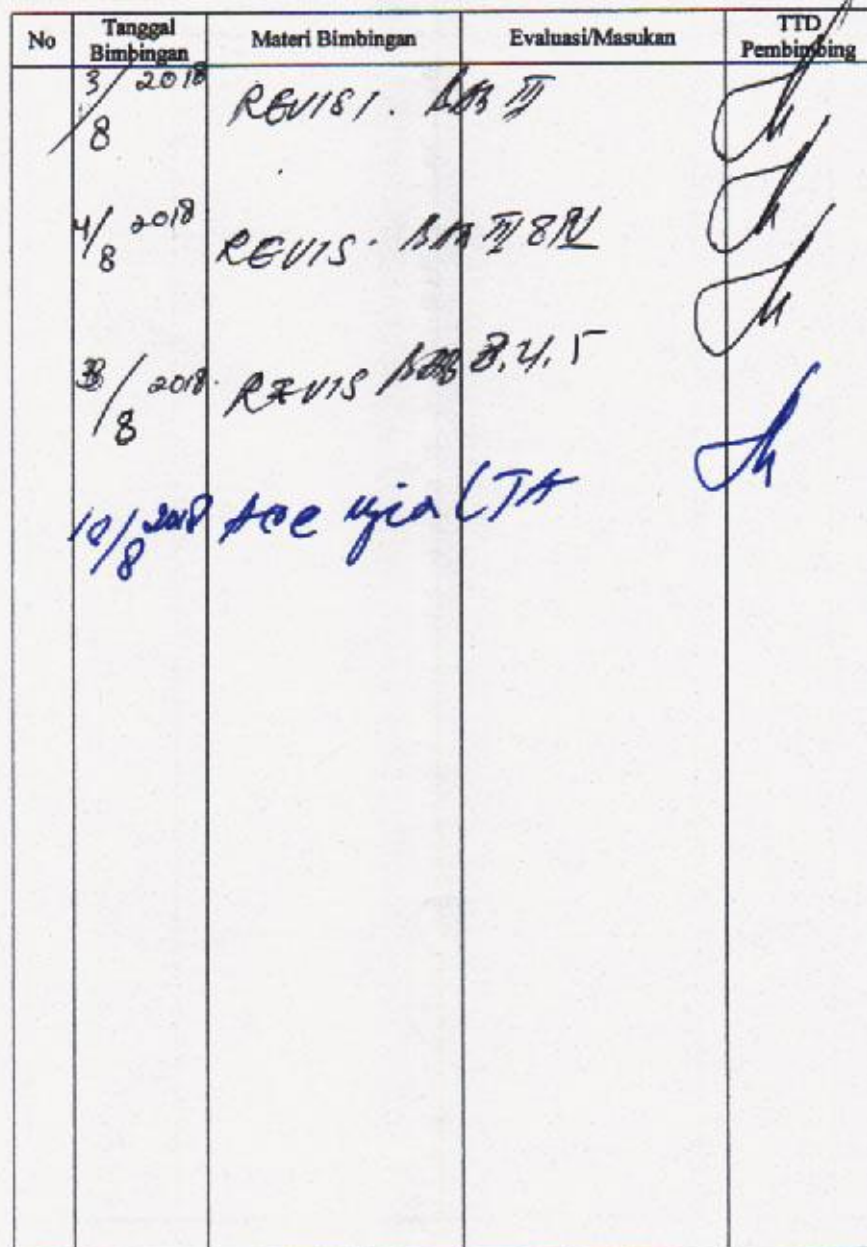 No Tanggal Bimbingan Materi Bimbingan Evaluasi/Masukan TTD Pembimbing
3/8 2018 REVISI. BAB III
4/8 2018 REVIS. BAB III & IV
/8 2018. REVIS BAB 3, 4, 5
10/8 2018 Acc ujian LTA